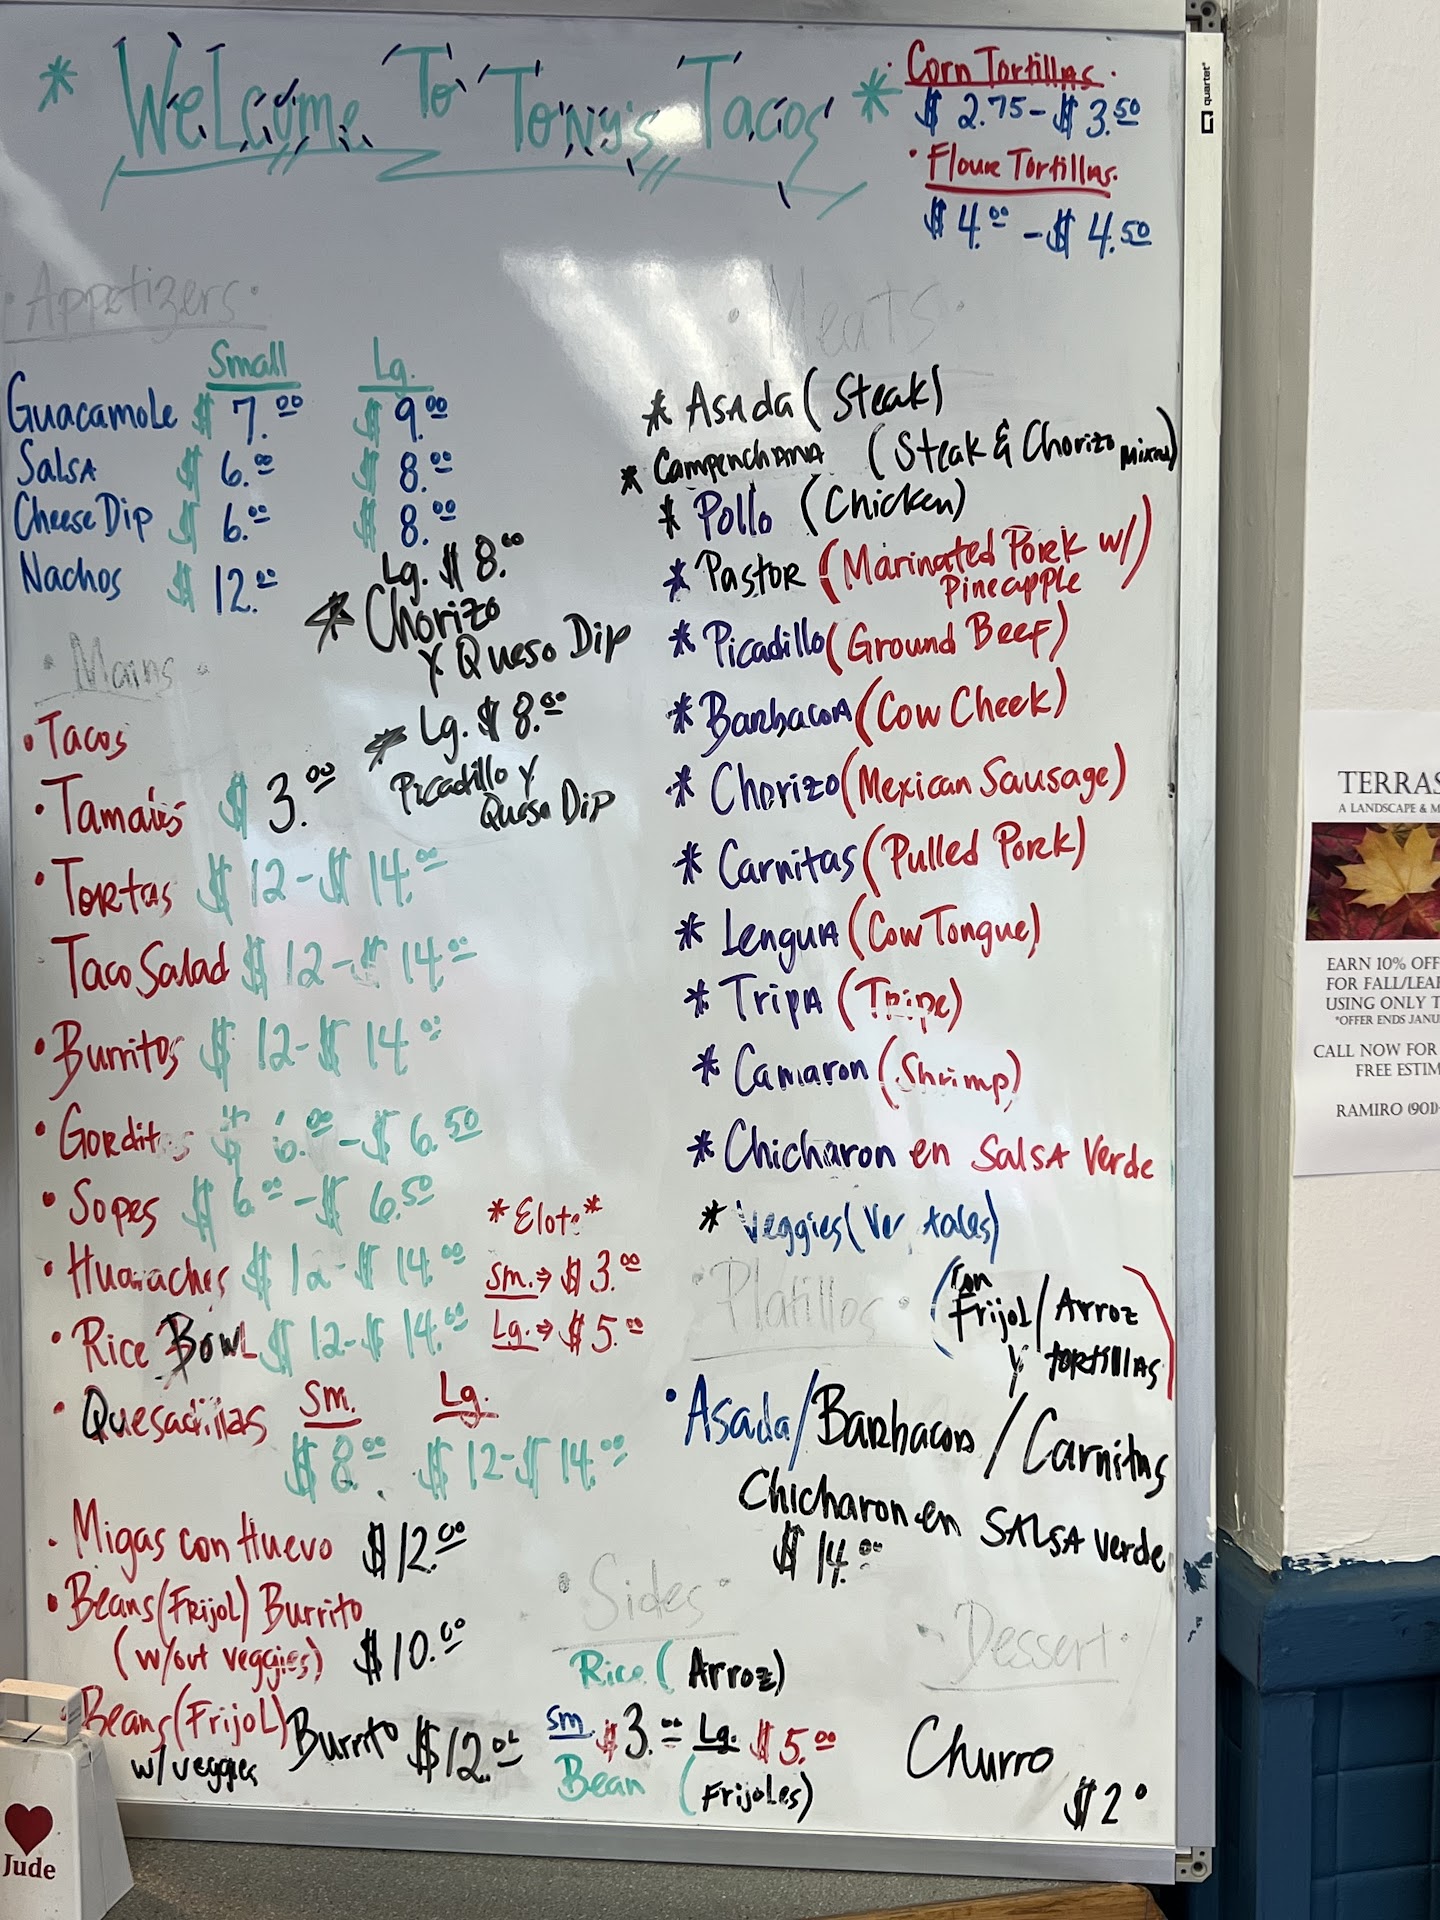 * Welcome To Tony's Tacos *
· Corn Tortillas ·
$ 2.75 - $ 3.50
· Flour Tortillas.
$ 4.00 - $ 4.50
quartet
· Appetizers ·
Small Lg.
Guacamole $ 7.00 $ 9.00
Salsa $ 6.00 $ 8.00
Cheese Dip $ 6.00 $ 8.00
Nachos $ 12.00
Lg. $ 8.00
* Chorizo
y Queso Dip
* Lg. $ 8.00
Picadillo y
Queso Dip
· Mains ·
· Tacos
· Tamales $ 3.00
· Tortas $ 12 - $ 14.00
Taco Salad $ 12 - $ 14.00
· Burritos $ 12 - $ 14.00
· Gorditas $ 6.00 - $ 6.50
· Sopes $ 6.00 - $ 6.50
· Huaraches $ 12 - $ 14.00
· Rice Bowl $ 12 - $ 14.00
* Elote *
Sm. → $ 3.00
Lg. → $ 5.00
· Quesadillas Sm. Lg.
$ 8.00 $ 12 - $ 14.00
· Migas con Huevo $ 12.00
· Beans (Frijol) Burrito
(w/out veggies) $ 10.00
· Beans (Frijol) Burrito $ 12.00
w/ veggies
· Meats ·
* Asada (Steak)
* Campenchana (Steak & Chorizo mixed)
* Pollo (Chicken)
* Pastor (Marinated Pork w/
Pineapple)
* Picadillo (Ground Beef)
* Barbacoa (Cow Cheek)
* Chorizo (Mexican Sausage)
* Carnitas (Pulled Pork)
* Lengua (Cow Tongue)
* Tripa (Tripe)
* Camaron (Shrimp)
* Chicharon en Salsa Verde
* Veggies
· Platillos · (con
Frijol / Arroz
y tortillas)
· Asada / Barbacoa / Carnitas
Chicharon en Salsa Verde
$ 14.00
· Sides
Rice (Arroz)
Sm $ 3.00 Lg. $ 5.00
Bean (Frijoles)
· Dessert ·
Churro
$ 2.0
Jude
TERRAS
A LANDSCAPE & M
EARN 10% OFF
FOR FALL/LEA
USING ONLY T
*OFFER ENDS JANU
CALL NOW FOR
FREE ESTIM
RAMIRO (901)